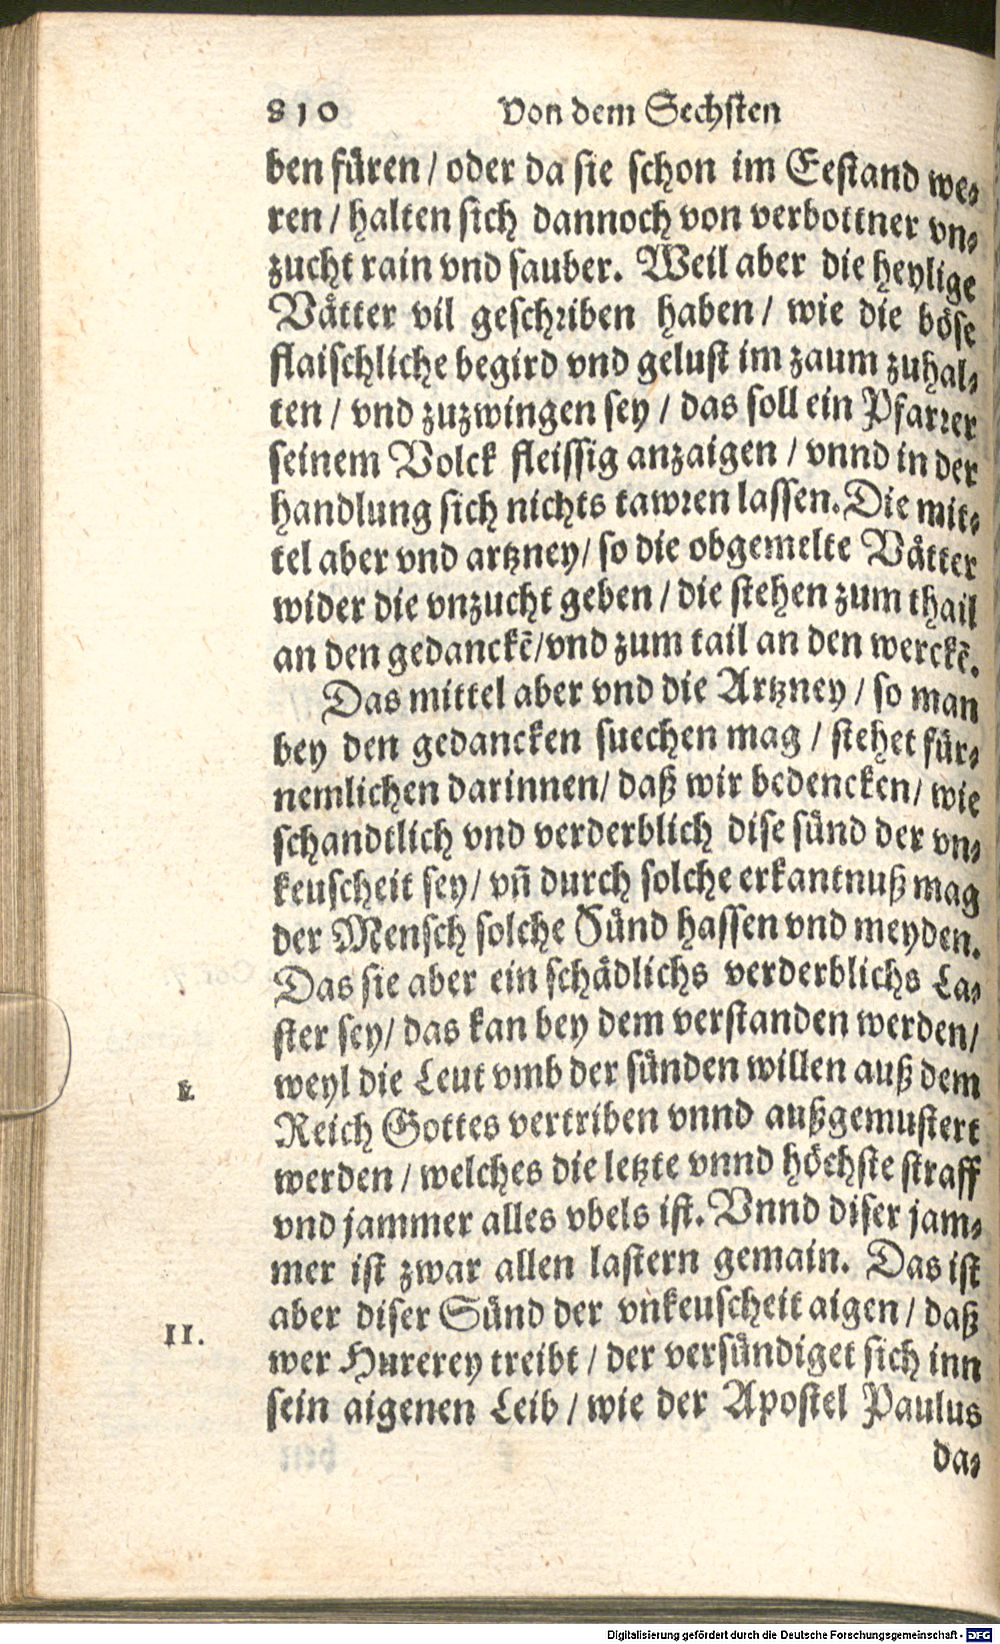 810 Von dem Sechsten
ben füren / oder da sie schon im Eestand we⸗
ren / halten sich dannoch von verbottner vn⸗
zucht rain vnd sauber. Weil aber die heylige
Vaͤtter vil geschriben haben / wie die boͤse
flaischliche begird vnd gelust im zaum zuhal⸗
ten / vnd zuzwingen sey / das soll ein Pfarrer
seinem Volck fleissig anzaigen / vnnd in der
handlung sich nichts tawren lassen. Die mit⸗
tel aber vnd artzney/ so die obgemelte Vaͤtter
wider die vnzucht geben / die stehen zum thail
an den gedanckẽ/vnd zum tail an den werckẽ.
Das mittel aber vnd die Artzney / so man
bey den gedancken suechen mag / stehet für⸗
nemlichen darinnen/ daß wir bedencken/ wie
schandtlich vnd verderblich dise sünd der vn⸗
keuscheit sey/ vñ durch solche erkantnuß mag
der Mensch solche Sünd hassen vnd meyden.
Das sie aber ein schaͤdlichs verderblichs La⸗
ster sey/ das kan bey dem verstanden werden/
I. weyl die Leut vmb der sünden willen auß dem
Reich Gottes vertriben vnnd außgemustert
werden / welches die letzte vnnd hoͤchste straff
vnd jammer alles vbels ist. Vnnd diser jam⸗
mer ist zwar allen lastern gemain. Das ist
aber diser Sünd der vnkeuscheit aigen / daß
II. wer Hurerey treibt / der versündiget sich inn
sein aigenen Leib / wie der Apostel Paulus
da⸗
Digitalisierung gefördert durch die Deutsche Forschungsgemeinschaft - DFG